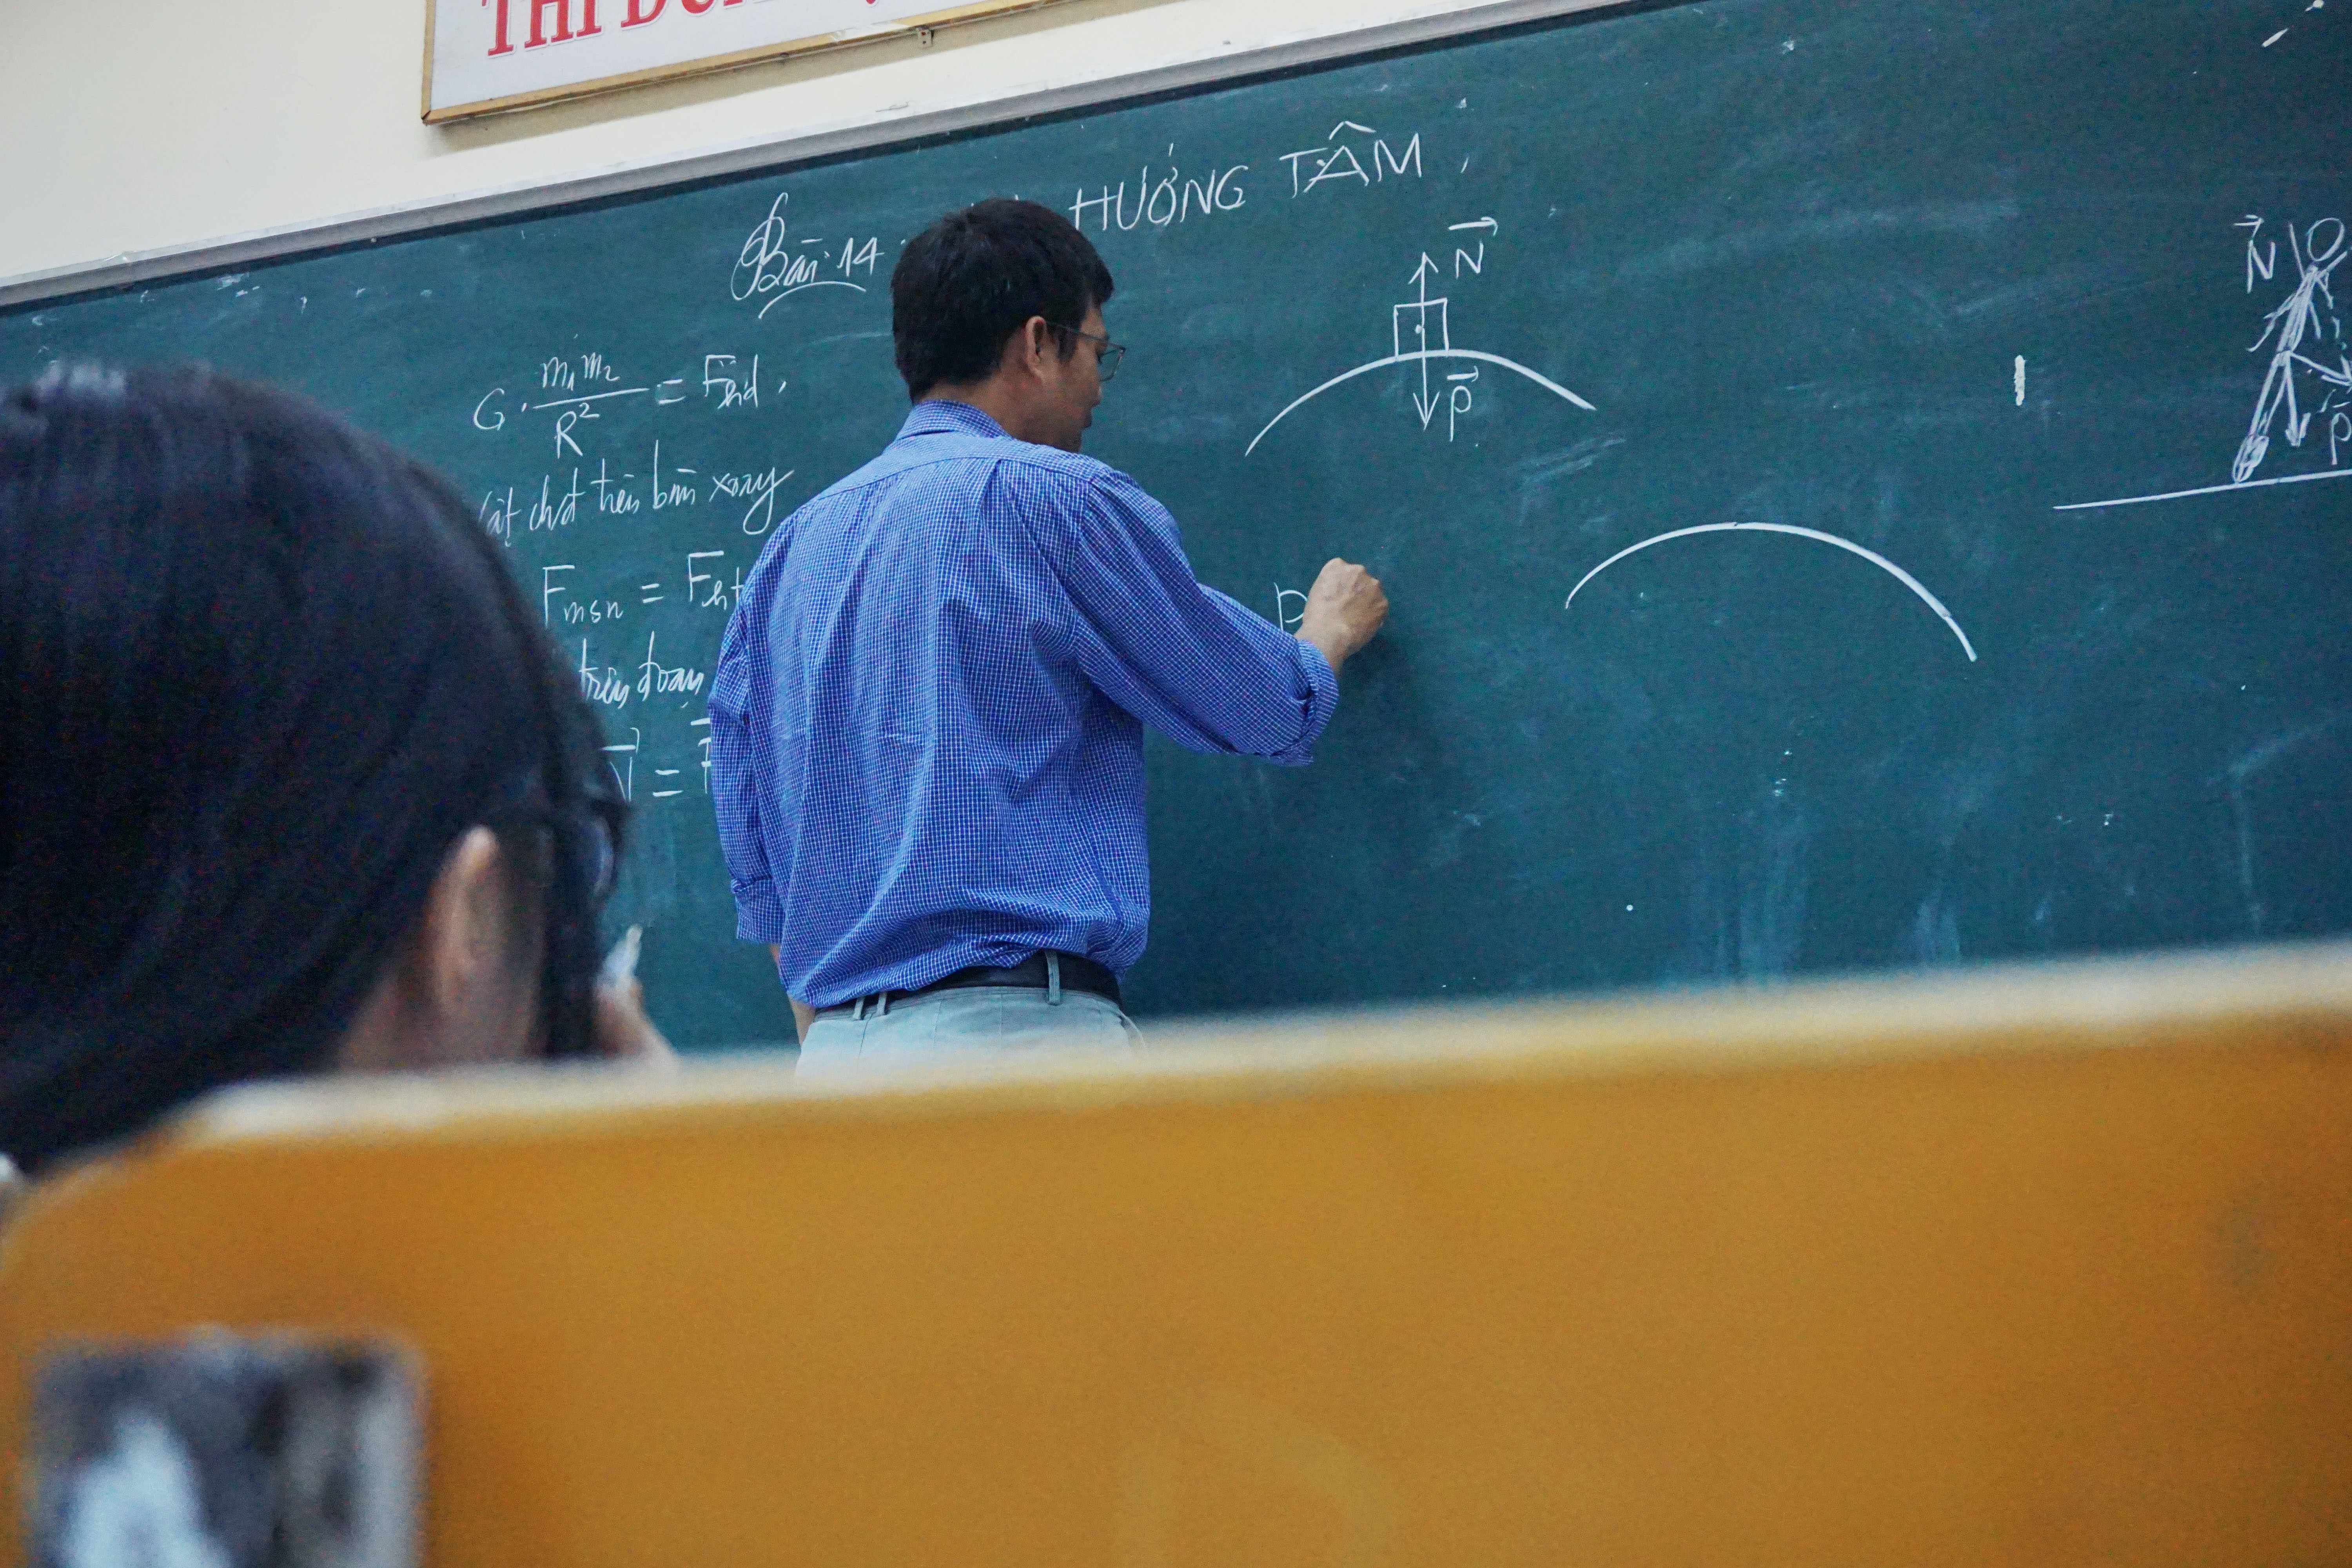 THI
Bài 14
HƯỚNG TÂM
G. m₁m₂ / R² = Fhd
chơi trên bàn xoay
Fmsn = Fht
trên đoạn
N =
N
P
P
N
P